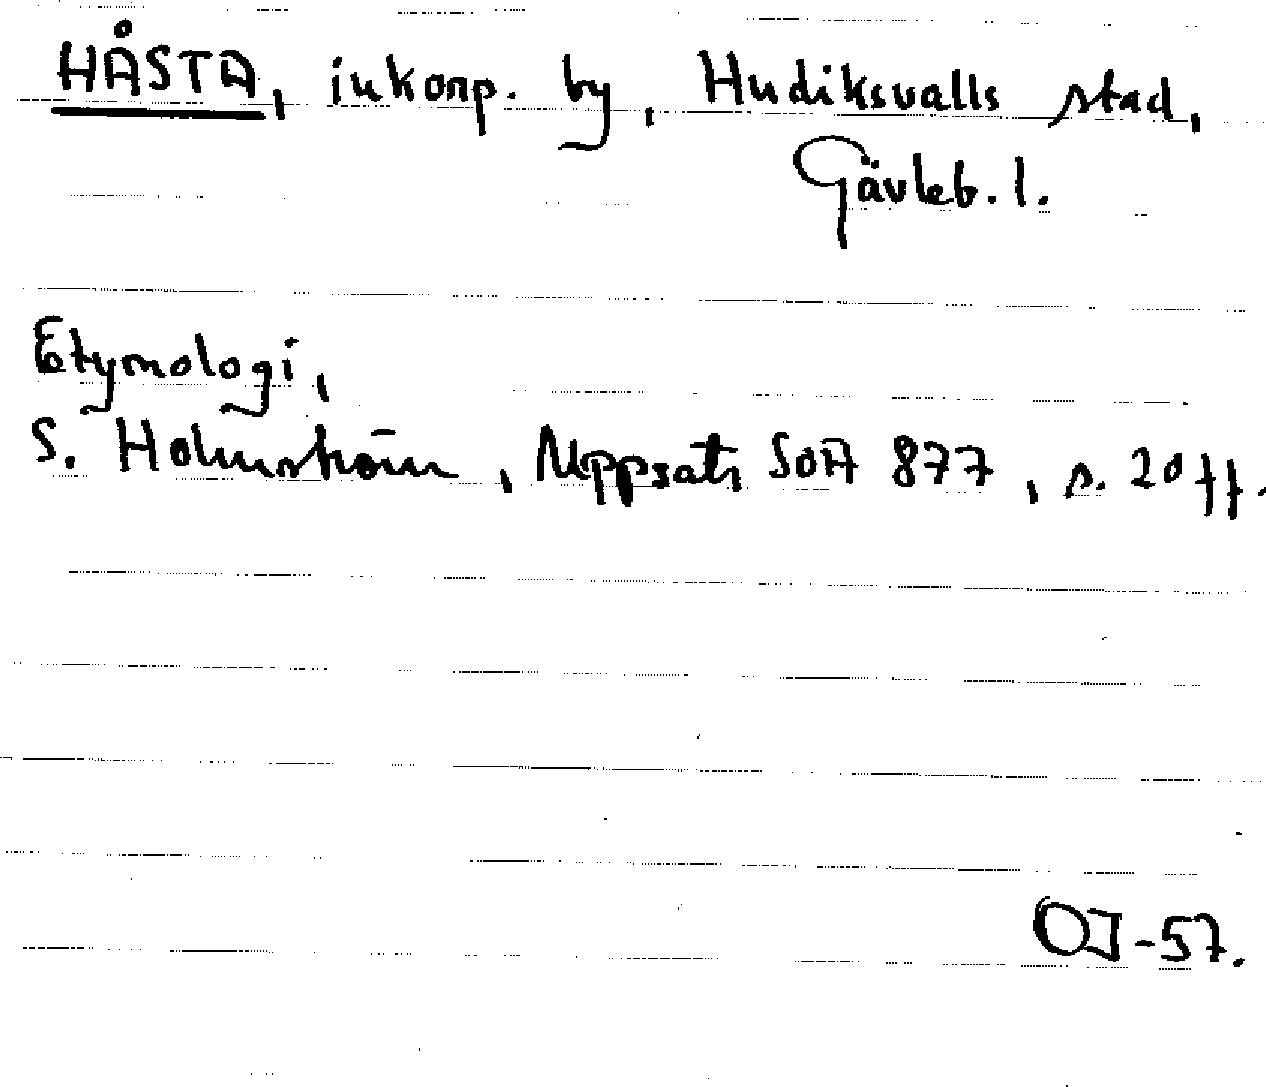 HÅSTA, inkorp. by, Hudiksvalls stad,
Gävleb. l.
Etymologi,
S. Holmström, Uppsats SOA 877, s. 20 ff.
OJ-57.